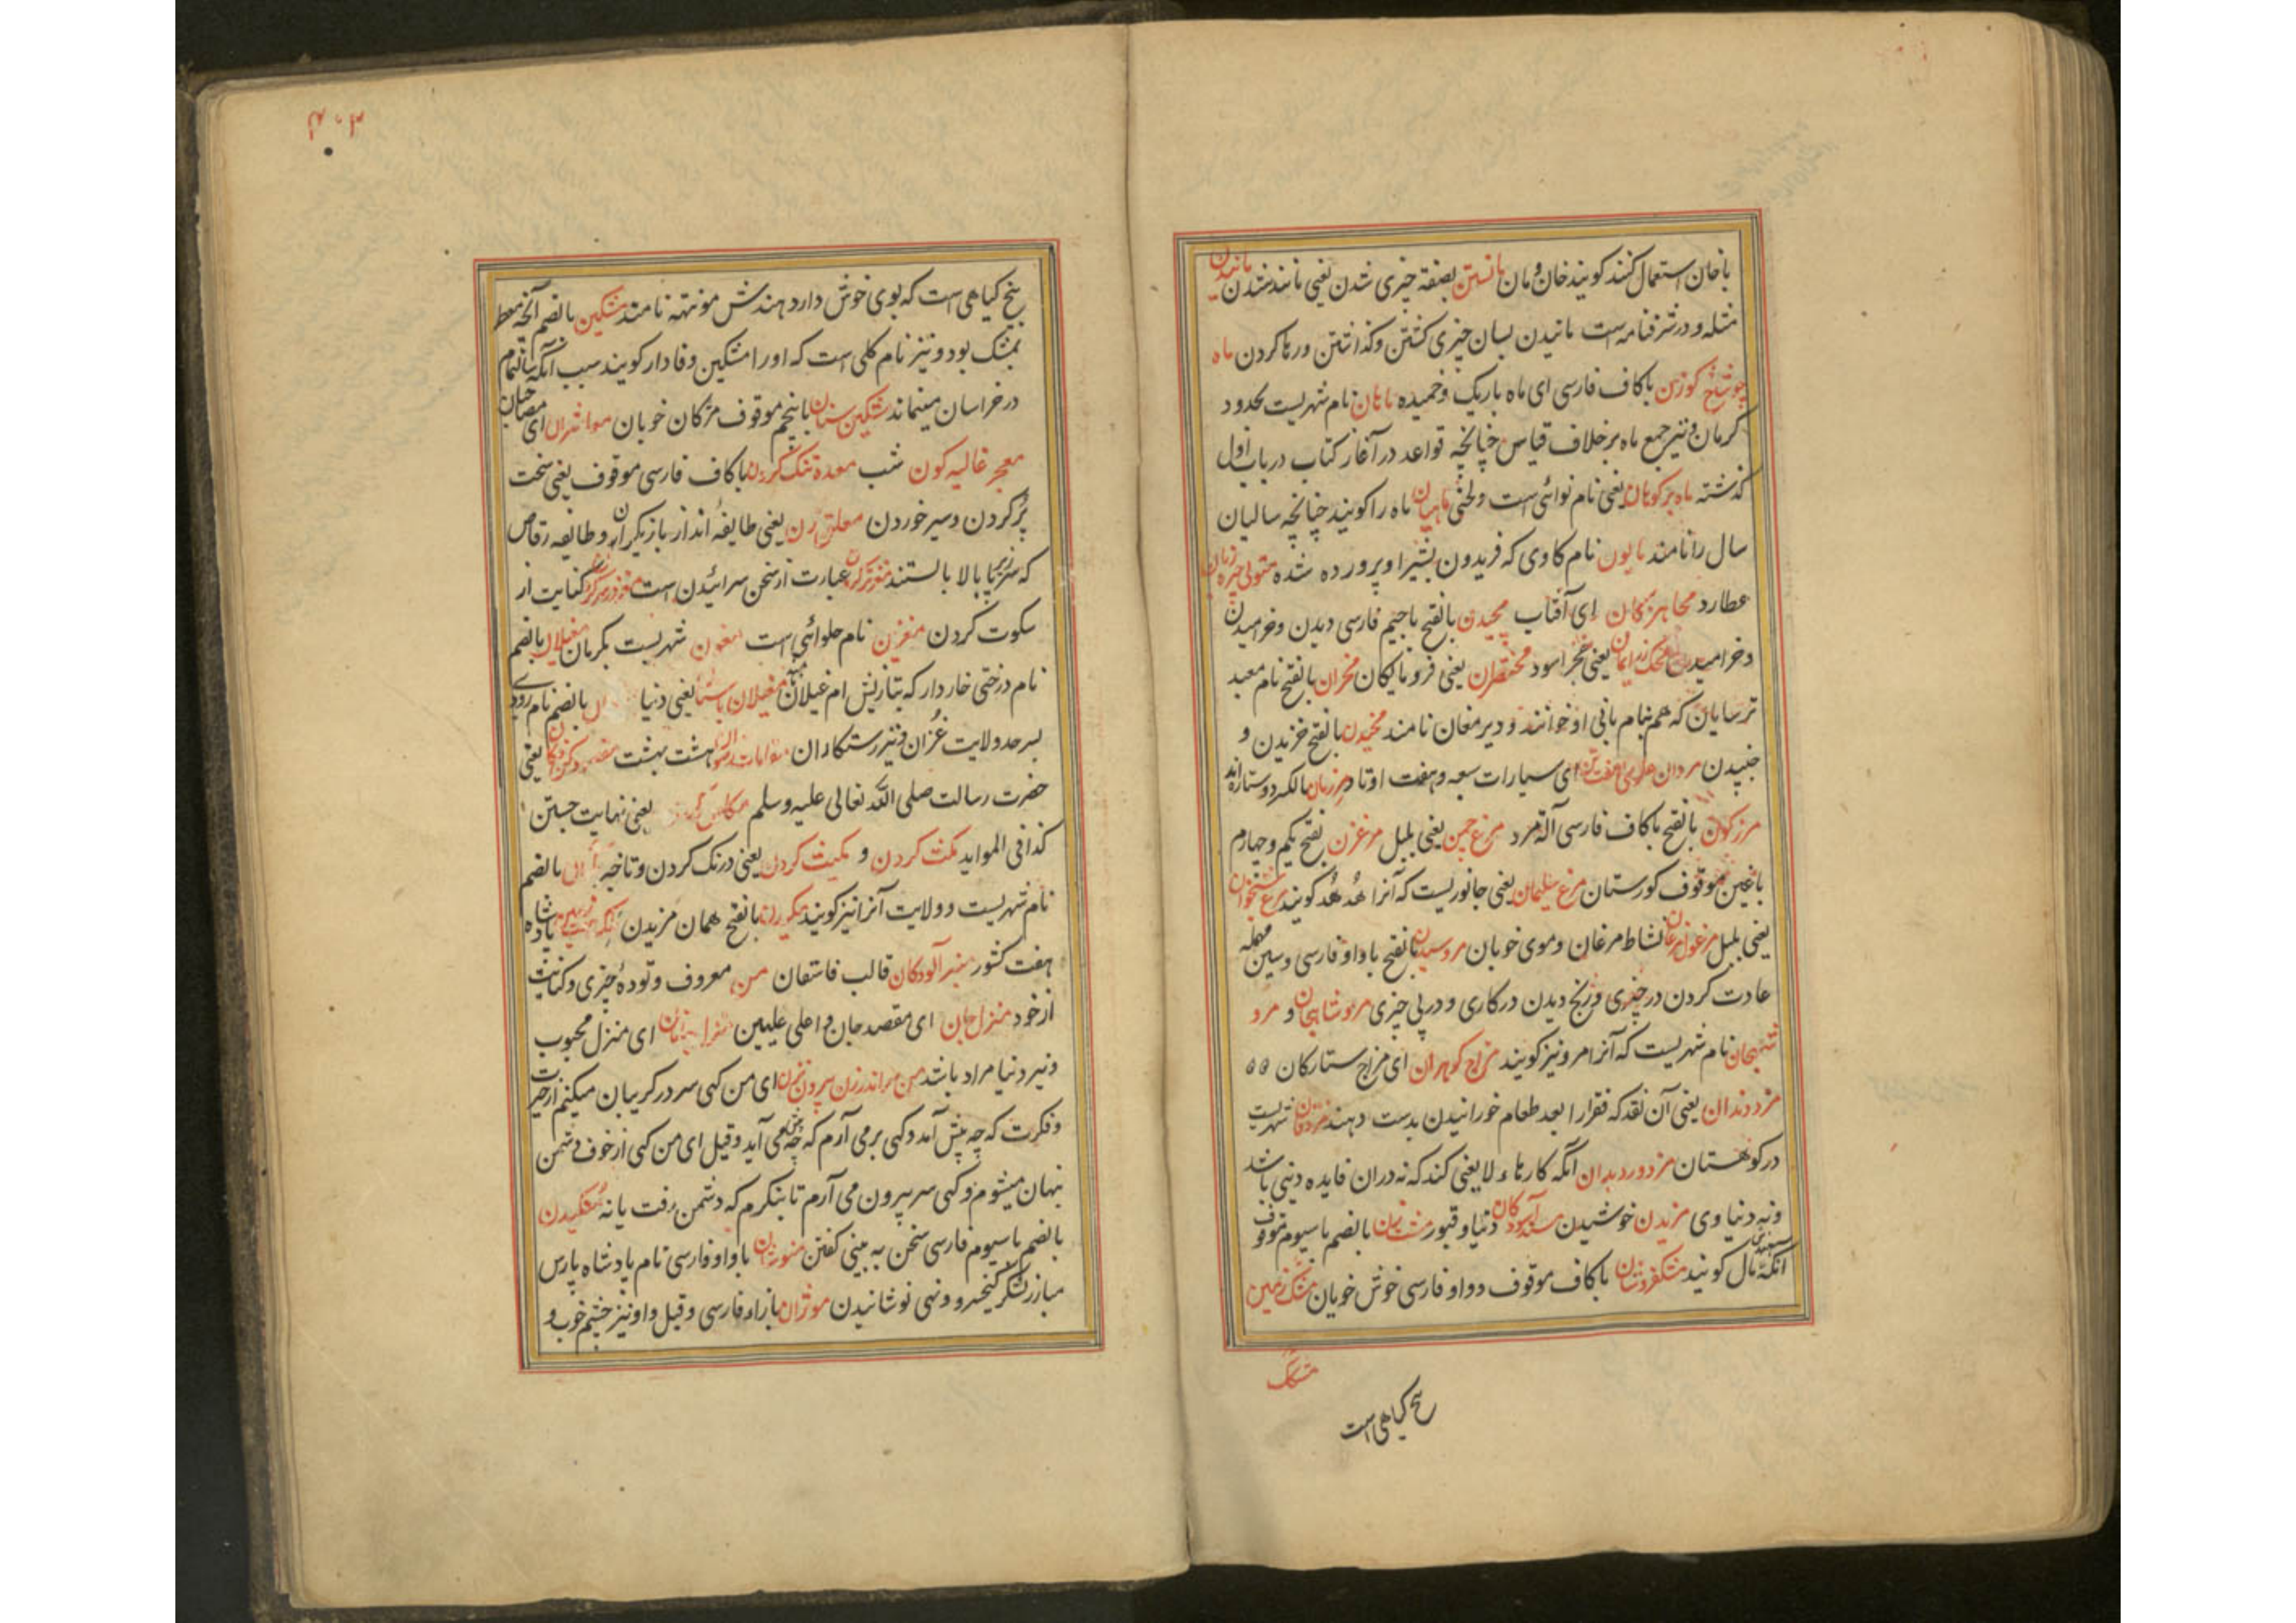 با خان استعمال کنند کویند خان و مان مانستن بصفة چیزی شدن یعنی مانند شدن مانیدن
مثله و در شرفنامه است مانیدن بسان چیزی کشتن و کذاشتن و رها کردن ماه
چو شاخ کوزن باکاف فارسی ای ماه باریک و خمیده ماهان نام شهریست بحدود
کرمان و نیز جمع ماه برخلاف قیاس چنانچه قواعد در آغاز کتاب در باب اول
کذشته ماه بر کوهان یعنی نام نوائی است و لحنی ماهیان ماه را کویند چنانچه سالیان
سال را نامند مایون نام کاوی که فریدون بشیر او پرورده شده
عطارد ای آفتاب مچیدن بالفتح باجیم فارسی دیدن و خرامیدن
و خرامیدن یعنی حجر اسود مختصران یعنی فرومایکان مخران بالفتح نام معبد
ترسایان که هم بنام بانی او خوانند و دیر مغان نامند مخیدن بالفتح خزیدن و
جنبیدن مردان ای سیارات سبعه و هفت اوتاد مرزبان مالک سرحد
مرزکون بالفتح باکاف فارسی آلة مرد مرغ چمن یعنی بلبل مرغزن بفتح یکم و چهارم
باغین موقوف کورستان مرغ سلیمان یعنی جانوریست که آنرا هُدهُد کویند مرغ شبخوان
یعنی بلبل مرغول مرغان نشاط مرغان و موی خوبان مروسیدن بالفتح با واو فارسی و سین مهمله
عادت کردن در چیزی و رنج دیدن در کاری و در پی چیزی مروشاهجان و مرو
شهجان نام شهریست که آنرا مرو نیز کویند مزاج کوهران ای مزاج ستارکان
مزد دندان یعنی آن نقد که فقرا را بعد طعام خورانیدن بدست دهند شهریست
در کوهستان مزدور دیدان آنکه کارهاء لایعنی کند که نه دران فایده دینی باشد
و نه دنیاوی مزیدن خوشیدن دنیا و قبور مشت زن بالضم باسیوم موقوف
آنکه مال کویند مشکفروشان باکاف موقوف و واو فارسی خوش خویان مشک زمین
مشک
بیخ کیاهی است
۴۰۳
بیخ کیاهی است که بوی خوش دارد هندش موتهه نامند مشکین بالضم آنچه معطر
بمشک بود و نیز نام کلی است که او را مشکین وفادار کویند سبب آنکه
در خراسان میماند مشکین سنان باپنجم موقوف مژکان خوبان ای مصاحبان
معجر غالیه کون شب معده تنک کردن باکاف فارسی موقوف یعنی سخت
پُر کردن و سیر خوردن معلق زن یعنی طایفهٔ انداز بازیکران و طایفه رقاص
که سر زیر پا بالا بایستند عبارت از سخن سرائیدن است کنایت از
سکوت کردن مغزن نام حلوائی است مغون شهریست بکرمان مغیلان بالضم
نام درختی خاردار که بتازیش ام غیلان نامند مغیلان یعنی دنیا بالضم نام رودی
بسرحد ولایت غزان و نیز رستکاران مقامات هشت بهشت یعنی
حضرت رسالت صلی الله تعالی علیه وسلم یعنی نهایت جستن
کذا فی الموائد مکث کردن و مکیث کردن یعنی درنک کردن و تاخیر بالضم
نام شهریست و ولایت آنرا نیز کویند بالفتح همان مزیدن
هفت کشور منبر آلودکان قالب فاسقان من معروف و تودهٔ چیزی و کنایت
از خود منزل جان ای مقصد جان و اعلی علیین ای منزل محبوب
و نیز دنیا مراد باشد ای من کهی سر در کریبان میکنم از حیرت
و فکرت که چه پیش آمد و کهی برمی آرم که چه پیش می آید و قیل ای من کهی از خوف دشمن
پنهان میشوم و کهی سر بیرون می آرم تا بنکرم که دشمن رفت یا نه مُنکیدن
بالضم باسیوم فارسی سخن به بینی کفتن با واو فارسی نام پادشاه پارس
مبارز لشکر کیخسرو ونهی نوشانیدن موژان بازاء فارسی و قیل واو نیز چشم خوب و